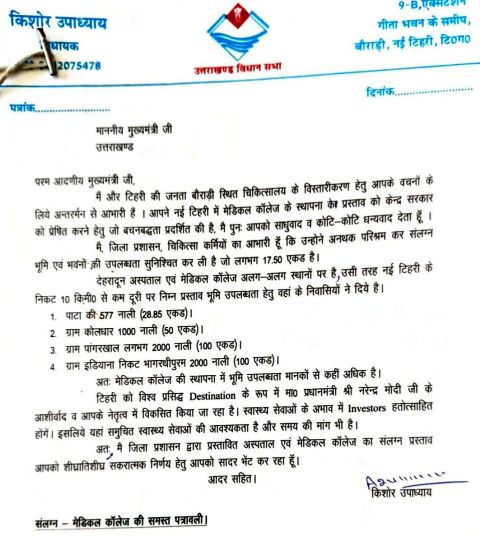 किशोर उपाध्याय
विधायक
2075478
उत्तराखण्ड विधान सभा
9-B, एक्सटेंशन
गीता भवन के समीप,
बौराड़ी, नई टिहरी, टि0ग0
पत्रांक
दिनांक
माननीय मुख्यमंत्री जी
उत्तराखण्ड
परम आदणीय मुख्यमंत्री जी,
मैं और टिहरी की जनता बौराड़ी स्थित चिकित्सालय के विस्तारीकरण हेतु आपके वचनों के
लिये अन्तरर्मन से आभारी हैं । आपने नई टिहरी में मेडिकल कॉलेज के स्थापना का प्रस्ताव को केन्द्र सरकार
को प्रेषित करने हेतु जो बचनबद्धता प्रदर्शित की है, मै पुनः आपको साधुवाद व कोटि-कोटि धन्यवाद देता हूँ ।
मै, जिला प्रशासन, चिकित्सा कर्मियों का आभारी हूँ कि उन्होने अनथक परिश्रम कर संलग्न
भूमि एवं भवनों की उपलब्धता सुनिश्चित कर ली है जो लगभग 17.50 एकड है।
देहरादून अस्पताल एवं मेडिकल कॉलेज अलग-अलग स्थानों पर है, उसी तरह नई टिहरी के
निकट 10 किमी0 से कम दूरी पर निम्न प्रस्ताव भूमि उपलब्धता हेतु वहां के निवासियों ने दिये है।
1. पाटा की 577 नाली (28.85 एकड़)।
2. ग्राम कोलधार 1000 नाली (50 एकड़)।
3. ग्राम पांगरखाल लगभग 2000 नाली (100 एकड़)।
4. ग्राम इंडियाना निकट भागरथीपुरम 2000 नाली (100 एकड़)।
अतः मेडिकल कॉलेज की स्थापना में भूमि उपलब्धता मानकों से कहीं अधिक है।
टिहरी को विश्व प्रसिद्ध Destination के रूप में मा0 प्रधानमंत्री श्री नरेन्द्र मोदी जी के
आशीर्वाद व आपके नेतृत्व में विकसित किया जा रहा है। स्वास्थ्य सेवाओं के अभाव में Investors हतोत्साहित
होंगें। इसलिये यहां समुचित स्वास्थ्य सेवाओं की आवश्यकता है और समय की मांग भी है।
अतः, मै जिला प्रशासन द्वारा प्रस्तावित अस्पताल एवं मेडिकल कॉलेज का संलग्न प्रस्ताव
आपको शीघ्रातिशीघ्र सकरात्मक निर्णय हेतु आपको सादर भेंट कर रहा हूँ।
आदर सहित।
किशोर उपाध्याय
संलग्न – मेडिकल कॉलेज की समस्त पत्रावली।